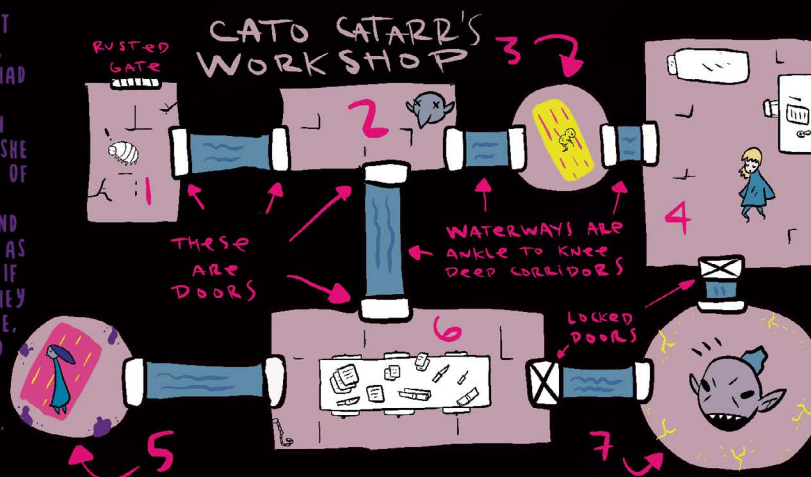 T
HAD
SHE
OF
ND
AS
IF
HEY
E,
CATO CATARR'S
WORKSHOP
RUSTED
GATE
1
2
3
4
THESE
ARE
DOORS
WATERWAYS ARE
ANKLE TO KNEE
DEEP CORRIDORS
LOCKED
DOORS
5
6
7